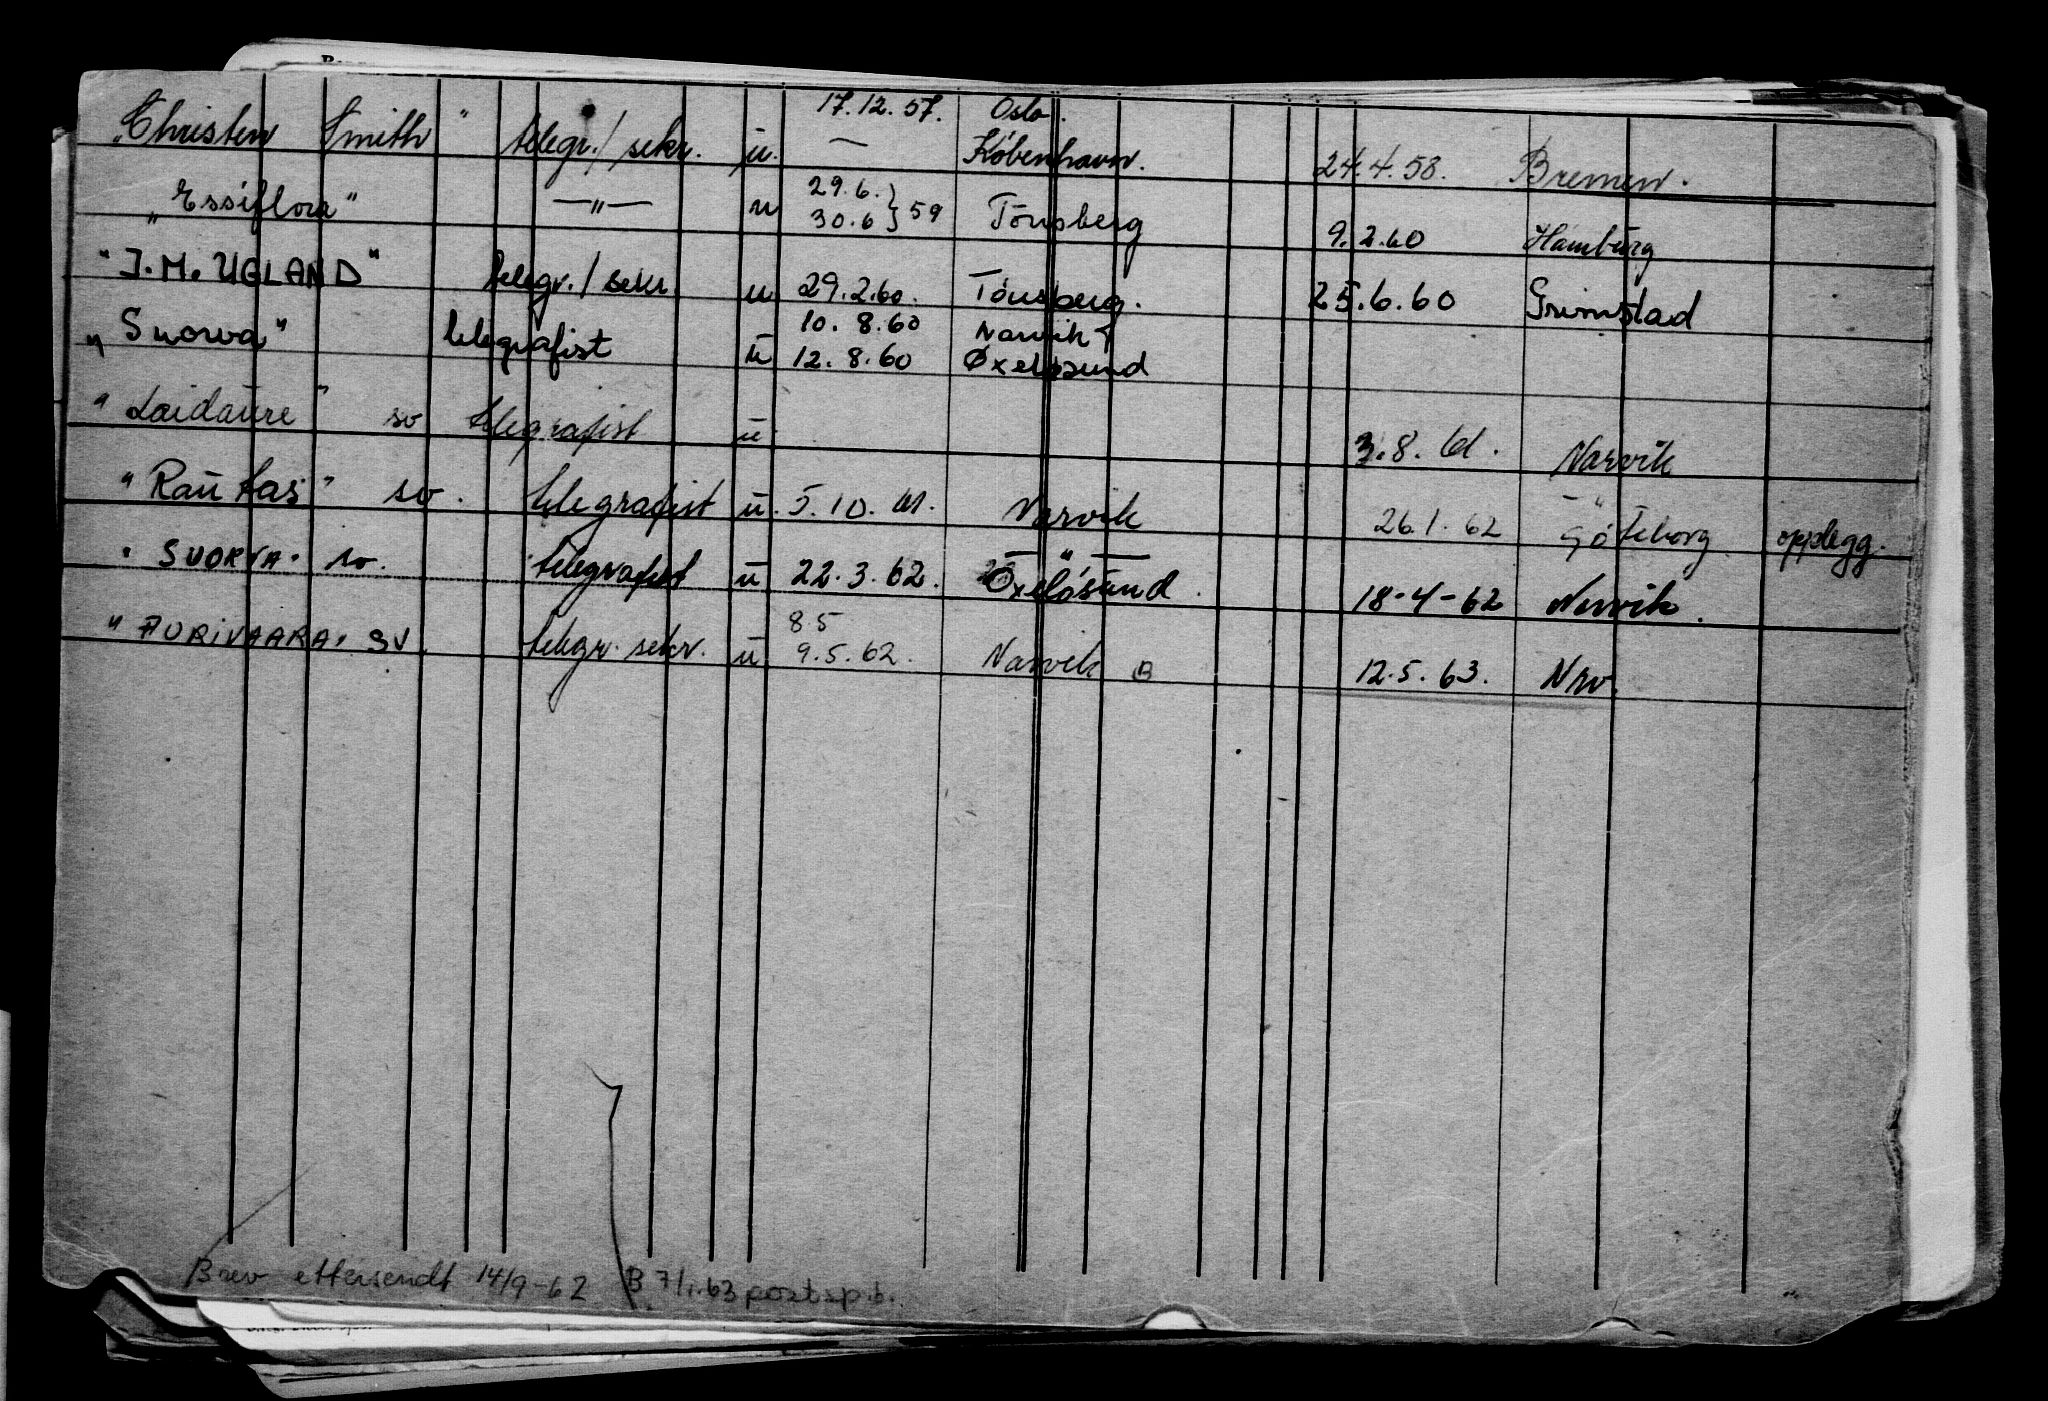 17.12.57. Oslo.
"Christen Smith" telegr./sekr. u. — København. 24.4.58. Bremen.
29.6. }
"Essiflora" —"— u 30.6 } 59 Tønsberg 9.2.60 Hamburg
"J.M. UGLAND" telegr./sekr. u 29.2.60. Tønsberg. 25.6.60 Grimstad
10.8.60 Narvik
"Suorva" telegrafist u 12.8.60 Øxeløsund
"Laidaure" sv telegrafist u 3.8.61. Narvik
"Rautas" sv. telegrafist u. 5.10.61. Narvik 26.1.62 Göteborg opplegg.
— " —
"SUORVA" sv. telegrafist u 22.3.62. Oxeløsund. 18-4-62 Narvik.
85
"AURIVAARA" SV. telegr. sekr. u 9.5.62. Narvik B 12.5.63. Nrv.
Brev ettersendt 14/9-62 B 7/1.63 postsp.b.